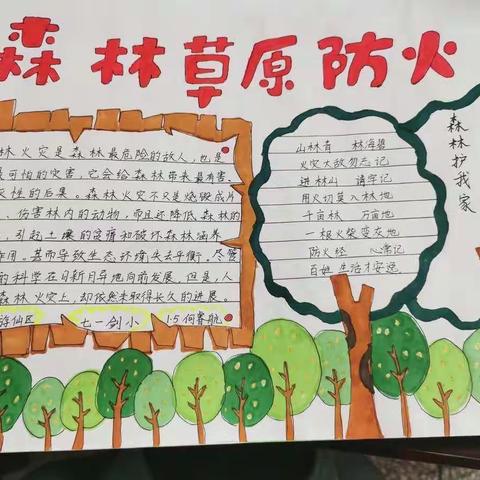 森林草原防火
林火灾是森林最危险的敌人,也是
最可怕的灾害,它会给森林带来最有害,
灭性的后果。森林火灾不只是烧毁成片
、伤害林内的动物,而且还降低森林的
,引起土壤的贫瘠和破坏森林涵养
作用。甚而导致生态环境失去平衡。尽管
的科学在日新月异地向前发展,但是,人
森林火灾上,却依然未取得长久的进展。
游仙区 七一剑小 1.5何睿航
山林青 林海碧
火灾大敌勿忘记
进林山 请牢记
用火切莫入林地
千亩林 万亩地
一根火柴变灰地
防火经 心常记
百姓生活才安逸
森林护我家